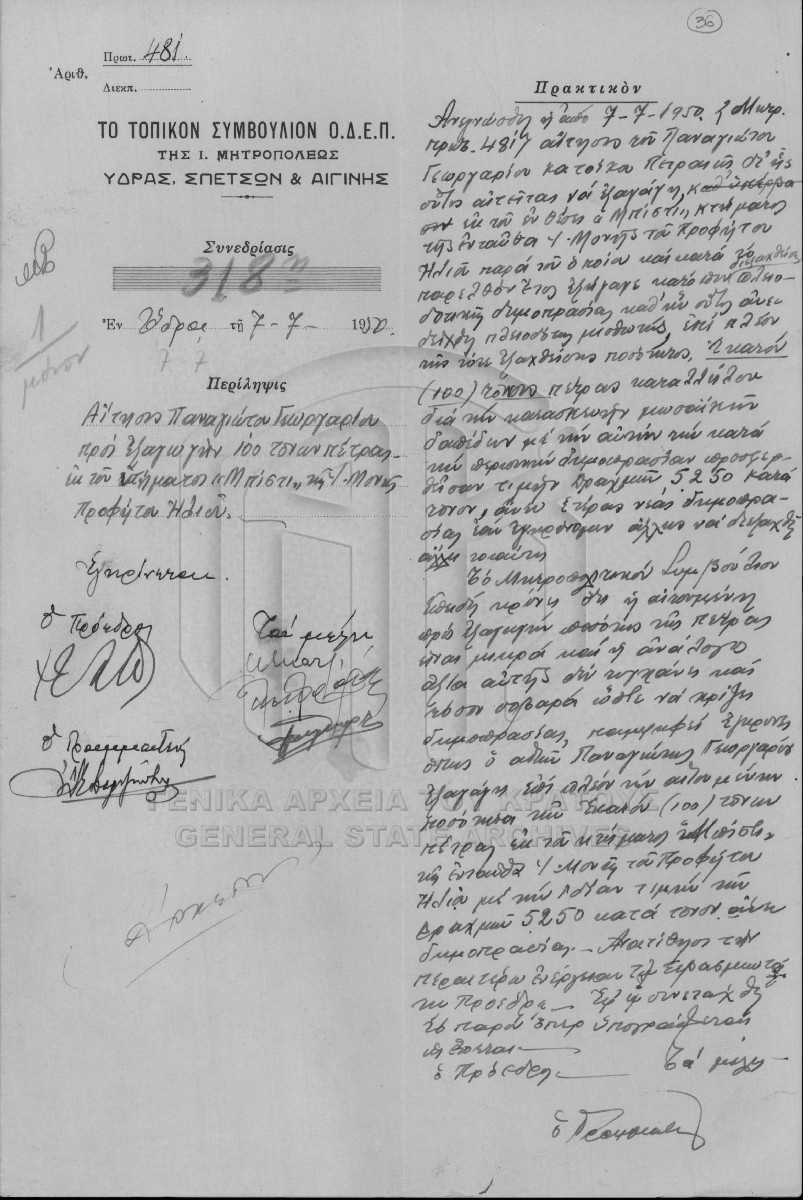 36
Πρωτ. 481.
Ἀριθ.
Διεκπ.
ΤΟ ΤΟΠΙΚΟΝ ΣΥΜΒΟΥΛΙΟΝ Ο.Δ.Ε.Π.
ΤΗΣ Ι. ΜΗΤΡΟΠΟΛΕΩΣ
ΥΔΡΑΣ, ΣΠΕΤΣΩΝ & ΑΙΓΙΝΗΣ
Συνεδρίασις
318η
Ἐν Ὕδρᾳ τῇ 7-7- 1950.
7 7
1
μόνον
Περίληψις
Αἴτησις Παναγιώτου Γεωργαρίου
πρὸς ἐξαγωγὴν 100 τόννων πέτρας
ἐκ τοῦ κτήματος «Μπίστι» τῆς Ἱ. Μονῆς
Προφήτου Ἠλιοῦ.
Ἐγκρίνεται.
Ὁ Πρόεδρος
Τὰ μέλη
Ὁ Γραμματεύς
Πρακτικὸν
Ἀνεγνώσθη ἡ ἀπὸ 7-7-1950
πρωτ. 481/ αἴτησις τοῦ Παναγιώτου
Γεωργαρίου κατοίκου Πειραιῶς δι' ἧς
οὗτος αἰτεῖται νὰ ἐξαγάγῃ,
ἐκ τοῦ ἐν θέσει «Μπίστι» κτήματος
τῆς ἐνταῦθα Ἱ. Μονῆς τοῦ Προφήτου
Ἠλιοῦ παρὰ τοῦ ὁποίου καὶ κατὰ τὸ
παρελθὸν ἔτος ἐξήγαγε κατόπιν διεξαχθείσης πλειο-
δοτικῆς δημοπρασίας καθ' ἣν οὗτος ἀνε-
δείχθη πλειοδότης μισθωτής, ἐπὶ πλέον
τῆς τότε ἐξαχθείσης ποσότητος, ἑκατὸν
(100) τόννους πέτρας καταλλήλου
διὰ τὴν κατασκευὴν μωσαϊκῶν
δαπέδων μὲ τὴν αὐτὴν τὴν κατὰ
τὴν περσινὴν δημοπρασίαν προσφερ-
θεῖσαν τιμὴν δραχμῶν 5250 κατὰ
τόννον, ἄνευ ἑτέρας νέας δημοπρα-
σίας
τοιαύτη
Τὸ Μητροπολιτικὸν Συμβούλιον
ἐπειδὴ κρίνει ὅτι ἡ αἰτουμένη
πρὸς ἐξαγωγὴν ποσότης τῆς πέτρας
εἶναι μικρὰ καὶ ἡ ἀνάλογος
ἀξία αὐτῆς δὲν τυγχάνει καὶ
τόσον σοβαρὰ ὥστε νὰ χρήζει
δημοπρασίας, παμψηφεὶ ἐγκρίνει
ὅπως ὁ αἰτῶν Παναγιώτης Γεωργαρίου
ἐξαγάγῃ ἐπὶ πλέον τὴν αἰτουμένην
ποσότητα τῶν ἑκατὸν (100) τόννων
πέτρας ἐκ τοῦ κτήματος «Μπίστι»
τῆς ἐνταῦθα Ἱ. Μονῆς τοῦ Προφήτου
Ἠλιοῦ μὲ τὴν ἰδίαν τιμὴν τῶν
δραχμῶν 5250 κατὰ τόννον ἄνευ
δημοπρασίας. Ἀνατίθησι τὴν
περαιτέρω ἐνέργειαν τῷ Σεβασμιωτά-
τῳ Προέδρῳ. Ἐφ' ᾧ συνετάχθη
τὸ παρὸν ὅπερ ὑπογράφεται
ὡς ἕπεται.
Ὁ Πρόεδρος Τὰ μέλη
Ὁ Γραμματεύς
ΓΕΝΙΚΑ ΑΡΧΕΙΑ ΤΟΥ ΚΡΑΤΟΥΣ
GENERAL STATE ARCHIVES